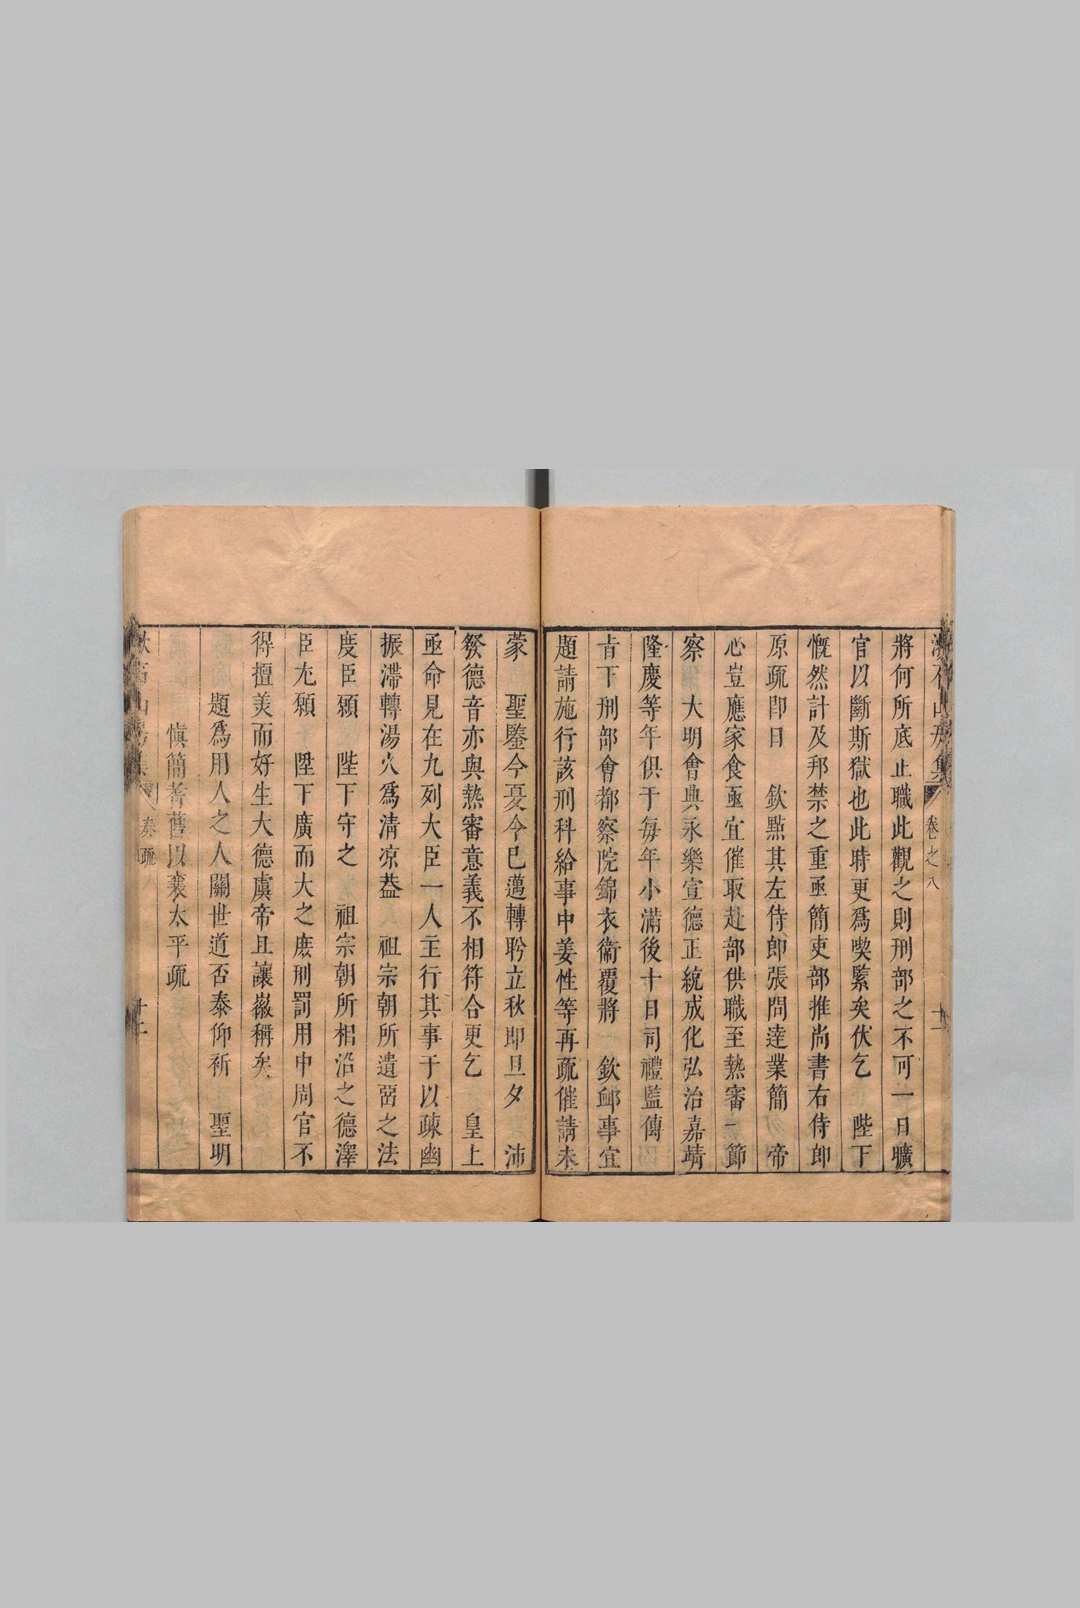 山房集 卷之八
將何所底止職此觀之則刑部之不可一日曠
官以斷斯獄也此時更爲喫緊矣伏乞 陛下
慨然計及邦禁之重亟簡吏部推尚書右侍郎
原疏即日 欽點其左侍郎張問達業簡 帝
心豈應家食亟宜催取赴部供職至熱審一節
察 大明會典永樂宣德正統成化弘治嘉靖
隆慶等年俱于每年小滿後十日司禮監傳
旨下刑部會都察院錦衣衞覆將 欽䘏事宜
題請施行該刑科給事中姜性等再疏催請未
蒙 聖鑒今憂今巳邁轉聆立秋即旦夕 沛
發德音亦與熱審意義不相符合更乞 皇上
亟命見在九列大臣一人主行其事于以疎幽
振滯轉湯火爲清凉葢 祖宗朝所遺曶之法
度臣願 陛下守之 祖宗朝所相沿之德澤
臣尤願 陞下廣而大之庶刑罰用中周官不
得擅美而好生大德虞帝且讓嶶稱矣
題爲用人之人關世道否泰仰祈 聖明
慎簡耆舊以襄太平疏
奏疏 十二